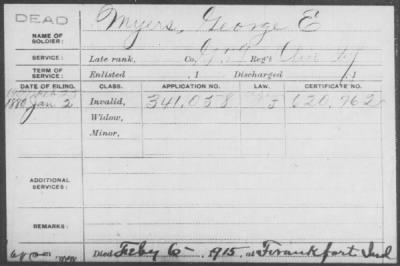 DEAD
Myers, George E
NAME OF SOLDIER:
SERVICE: Late rank, Co. Reg't
TERM OF SERVICE: Enlisted , 1 Discharged , 1
DATE OF FILING. CLASS. APPLICATION NO. LAW. CERTIFICATE NO.
1880 Jan 2 Invalid, 341,058 620,962
Widow,
Minor,
ADDITIONAL SERVICES:
REMARKS:
Died Feby 6 1915, at Frankfort Ind